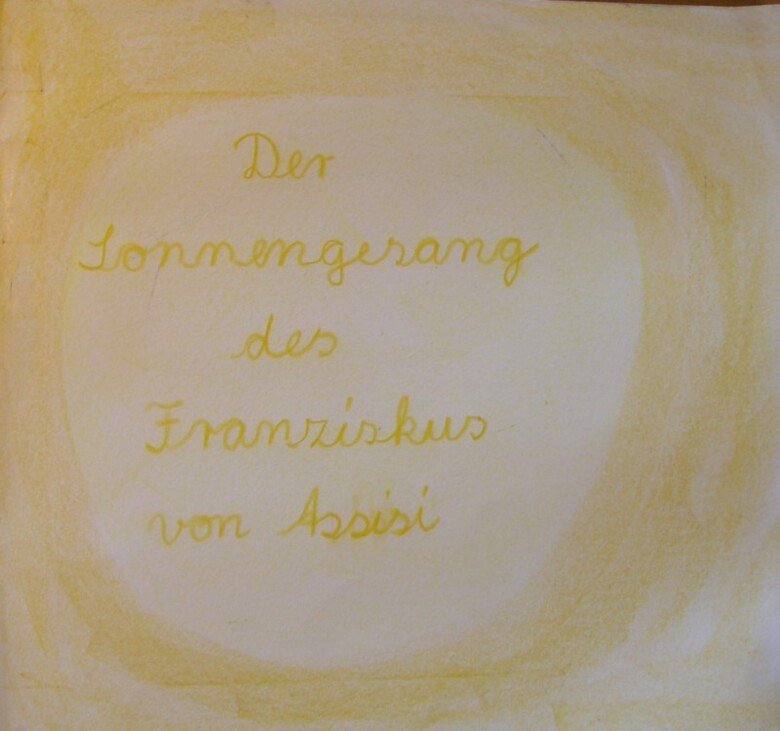 Der
Sonnengesang
des
Franziskus
von Assisi